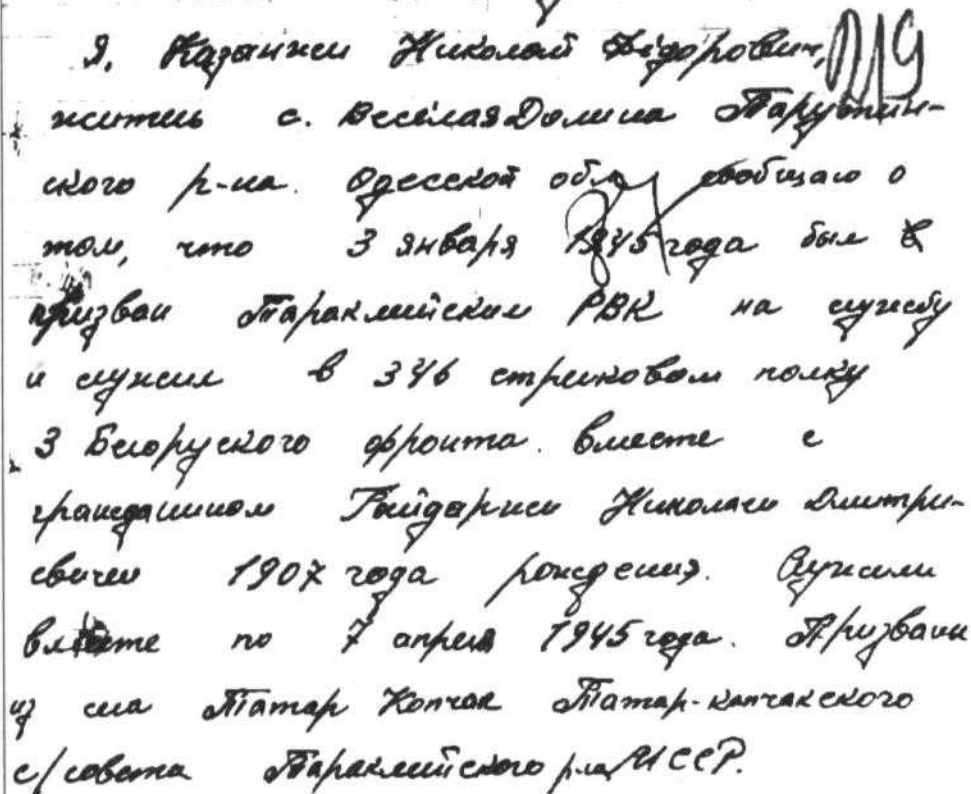 219
Я, Казанжи Николай Фёдорович,
житель с. Весёлая Долина Тарутин-
ского р-на. Одесской обл. сообщаю о
том, что 3 января 1945 года был в
призван Тараклийским РВК на службу
и служил в 346 стрелковом полку
3 Белоруского фронта. вместе с
гражданином Гайдаржи Николаем Дмитри-
евичем 1907 года рождения. Служили
вместе по 7 апреля 1945 года. Призваны
из села Татар Копчак Татар-копчакского
с/совета Тараклийского р-на МССР.